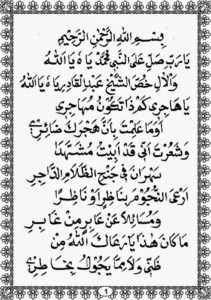 بِسْمِ اللهِ الرَّحْمٰنِ الرَّحِيْمِ
يَا رَبِّ صَلِّ عَلَى النَّبِيْ مُحَمَّدْ يَا هُ يَا اَللهُ
وَالْاٰلِ خُصَّ الشَّيْخَ عَبْدَ الْقَادِرِ يَا هُ يَا اَللهُ
يَا هَاجِرِيْ كَمْ ذَا تَكُوْنُ مُهَاجِرِيْ
اَوَمَا عَلِمْتَ بِاَنَّ هَجْرَكَ ضَائِرِيْ
وَشَعَرْتَ اَنِّيْ قَدْ اَبِيْتُ مُسَهَّدًا
سَهْرَانَ فِيْ جُنْحِ الظَّلَامِ الدَّاجِرِ
اَرْعَى النُّجُوْمَ بِنَاظِرٍ اَوْ نَاظِرًا
وَمُسَائِلًا عَنْ عَابِرٍ مِنْ غَابِرِ
مَا كَانَ هٰذَا يَا رَعَاكَ اللهُ مِنْ
ظَنِّيْ وَلَا مِمَّا يَجُوْلُ بِخَاطِرِيْ
1